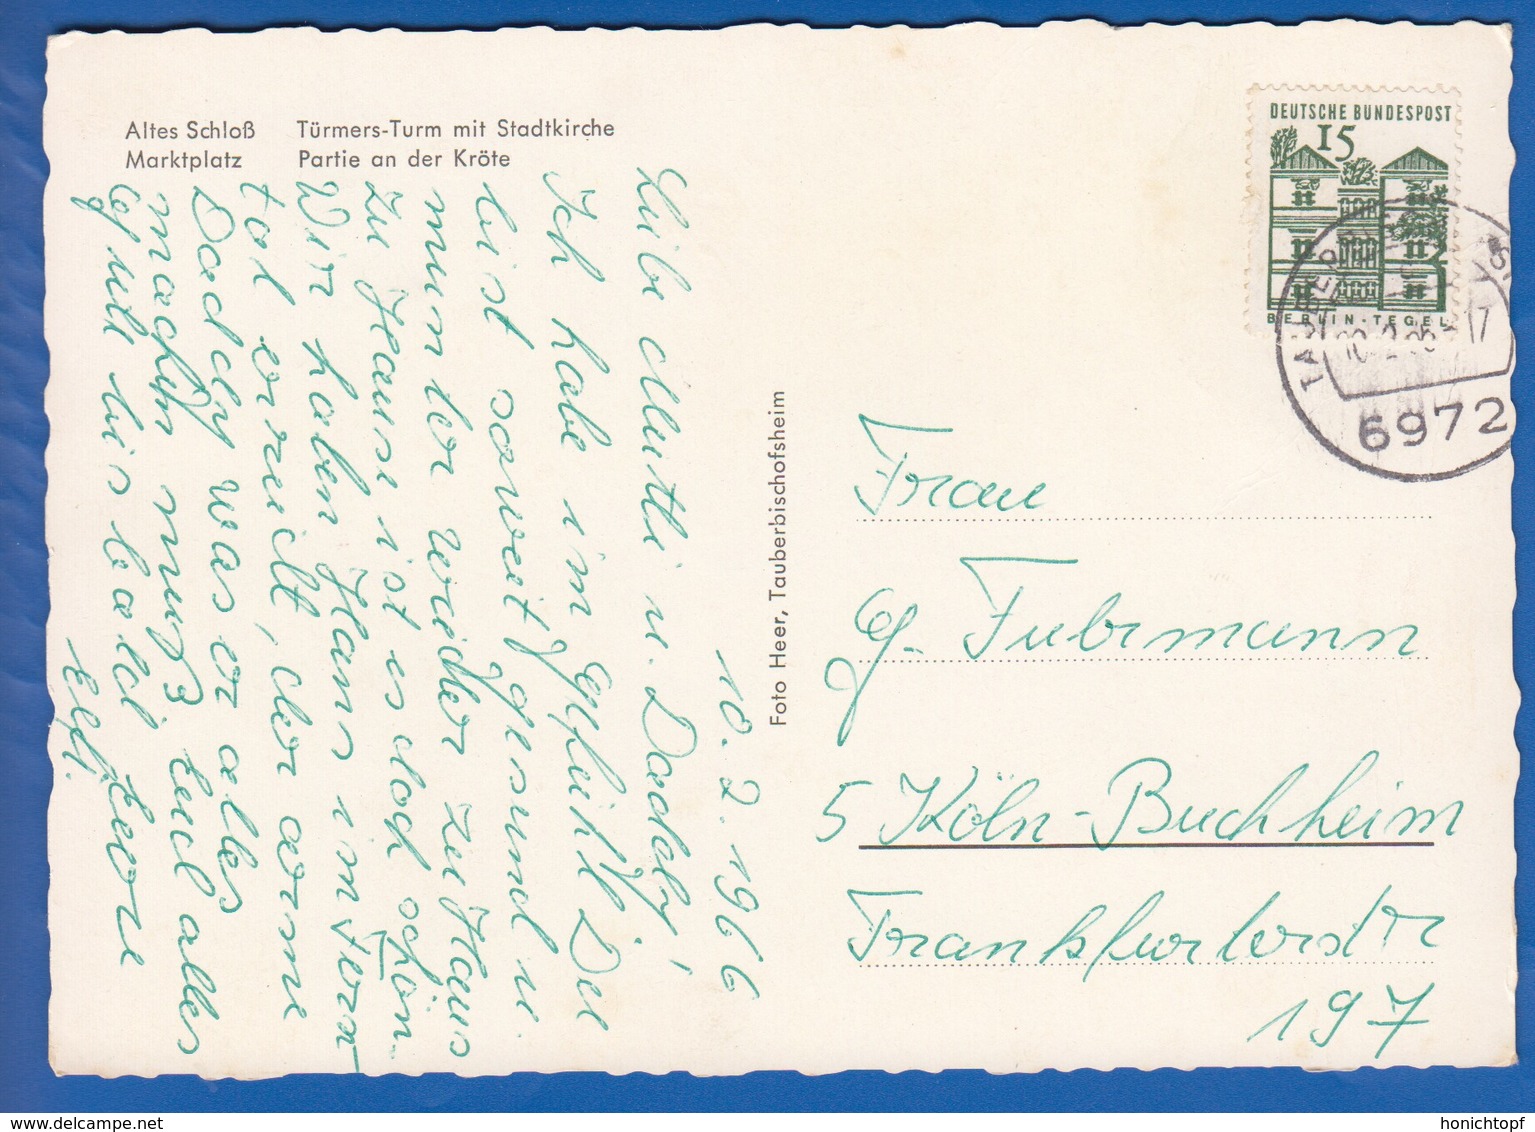 Altes Schloß Türmers-Turm mit Stadtkirche
Marktplatz Partie an der Kröte
10. 2. 1966
Liebe Mutti u. Daddy!
Ich habe im Gefühl Du
bist soweit gesund u.
munter wieder zu Haus
zu Hause ist es doch schön
Wir haben Hans im
tal erreicht, der arme
Daddy was er alles
machen muß und alles
Gute bis bald, Eure
Elfi.
Foto Heer, Tauberbischofsheim
DEUTSCHE BUNDESPOST
15
BERLIN-TEGEL
10.2.66 17
6972
Frau
G. Fuhrmann
5 Köln-Buchheim
Frankfurterstr
197
honichtopf